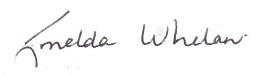 Imelda Whelan